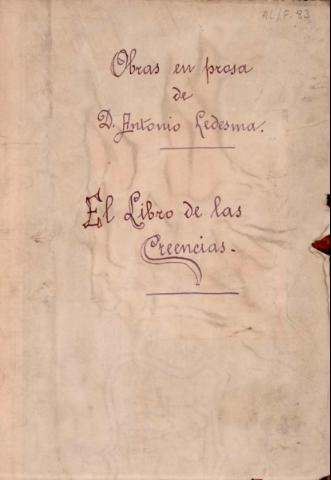 AL/F. 83
Obras en prosa
de
D. Antonio Ledesma.
El Libro de las
Creencias.